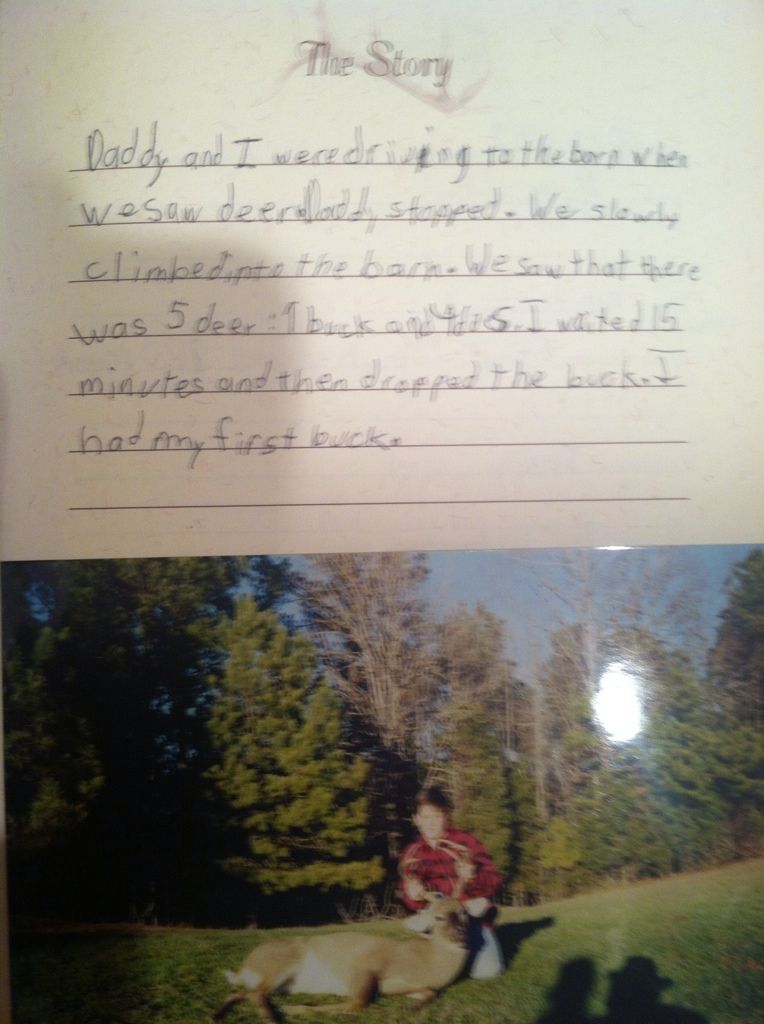 The Story
Daddy and I were driving to the barn when
we saw deer. Daddy stopped. We slowly
climbed into the barn. We saw that there
was 5 deer: 1 buck and 4 does. I waited 15
minutes and then dropped the buck. I
had my first buck.